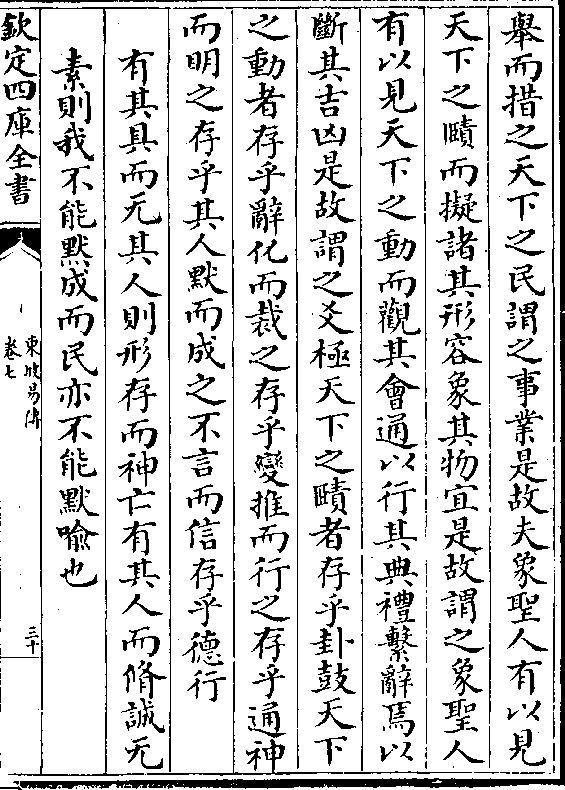 舉而措之天下之民謂之事業是故夫象聖人有以見
天下之賾而擬諸其形容象其物宜是故謂之象聖人
有以見天下之動而觀其會通以行其典禮繫辭焉以
斷其吉凶是故謂之爻極天下之賾者存乎卦鼓天下
之動者存乎辭化而裁之存乎變推而行之存乎通神
而明之存乎其人默而成之不言而信存乎德行
有其具而无其人則形存而神亡有其人而脩誠无
素則我不能默成而民亦不能默喻也
欽定四庫全書
東坡易傳
卷七
三十